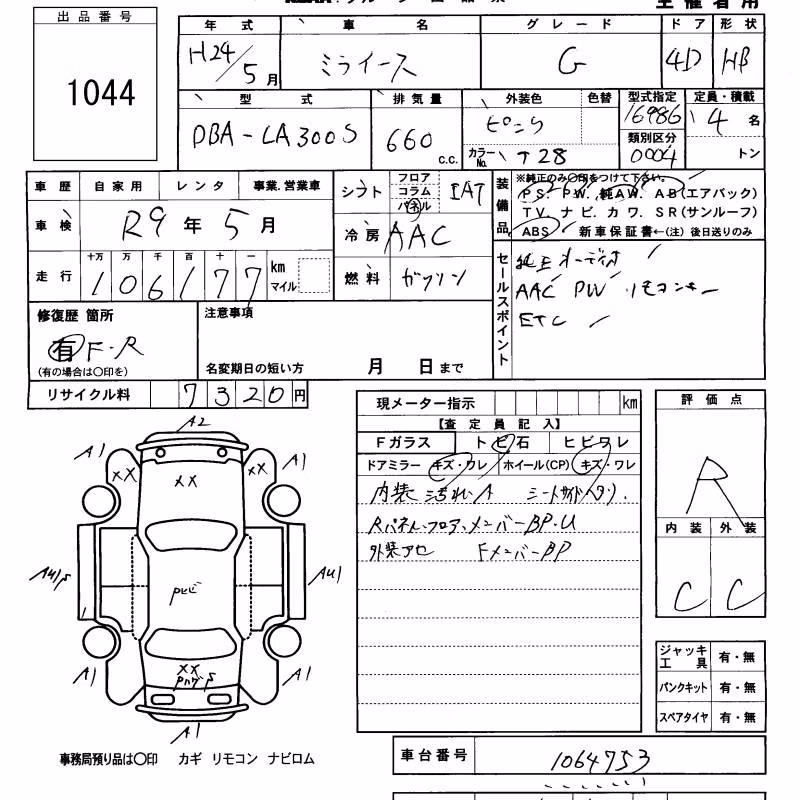 主催者用
出品番号
1044
年式 車名 グレード ドア 形状
H24/5月 ミライース G 4D HB
型式 排気量 外装色 色替 型式指定 定員・積載
DBA-LA300S 660 c.c. ピンク 16986 4名
カラーNo. T28 類別区分 0004 トン
車歴 自家用 レンタ 事業.営業車
シフト フロア コラム パネル IAT
装備品 ※純正のみ○印をつけて下さい。
PS. PW. 純AW. AB(エアバック)
TV. ナビ. カワ. SR(サンルーフ)
ABS 新車保証書←(注) 後日送りのみ
車検 R9年5月
冷房 AAC
走行 十万 万 千 百 十 一
106177 km マイル
燃料 ガソリン
セールスポイント 純正オーディオ
AAC PW リモコンキー
ETC
修復歴 箇所
有 F・R
(有の場合は○印を)
注意事項
名変期日の短い方 月 日まで
リサイクル料 7320円
現メーター指示 km
【査定員記入】
Fガラス トビ石 ヒビワレ
ドアミラー キズ・ワレ ホイール(CP) キズ・ワレ
内装 汚れA シートサイドヘタリ.
Rパネル・フロア、メンバーBP・U
外装アセ FメンバーBP
評価点
R
内装 外装
C C
A2
A1 A1
XX XX
XX
AU1 
A1 A1
XX
A1
ジャッキ工具 有・無
パンクキット 有・無
スペアタイヤ 有・無
事務局預り品は○印 カギ リモコン ナビロム
車台番号 1064753